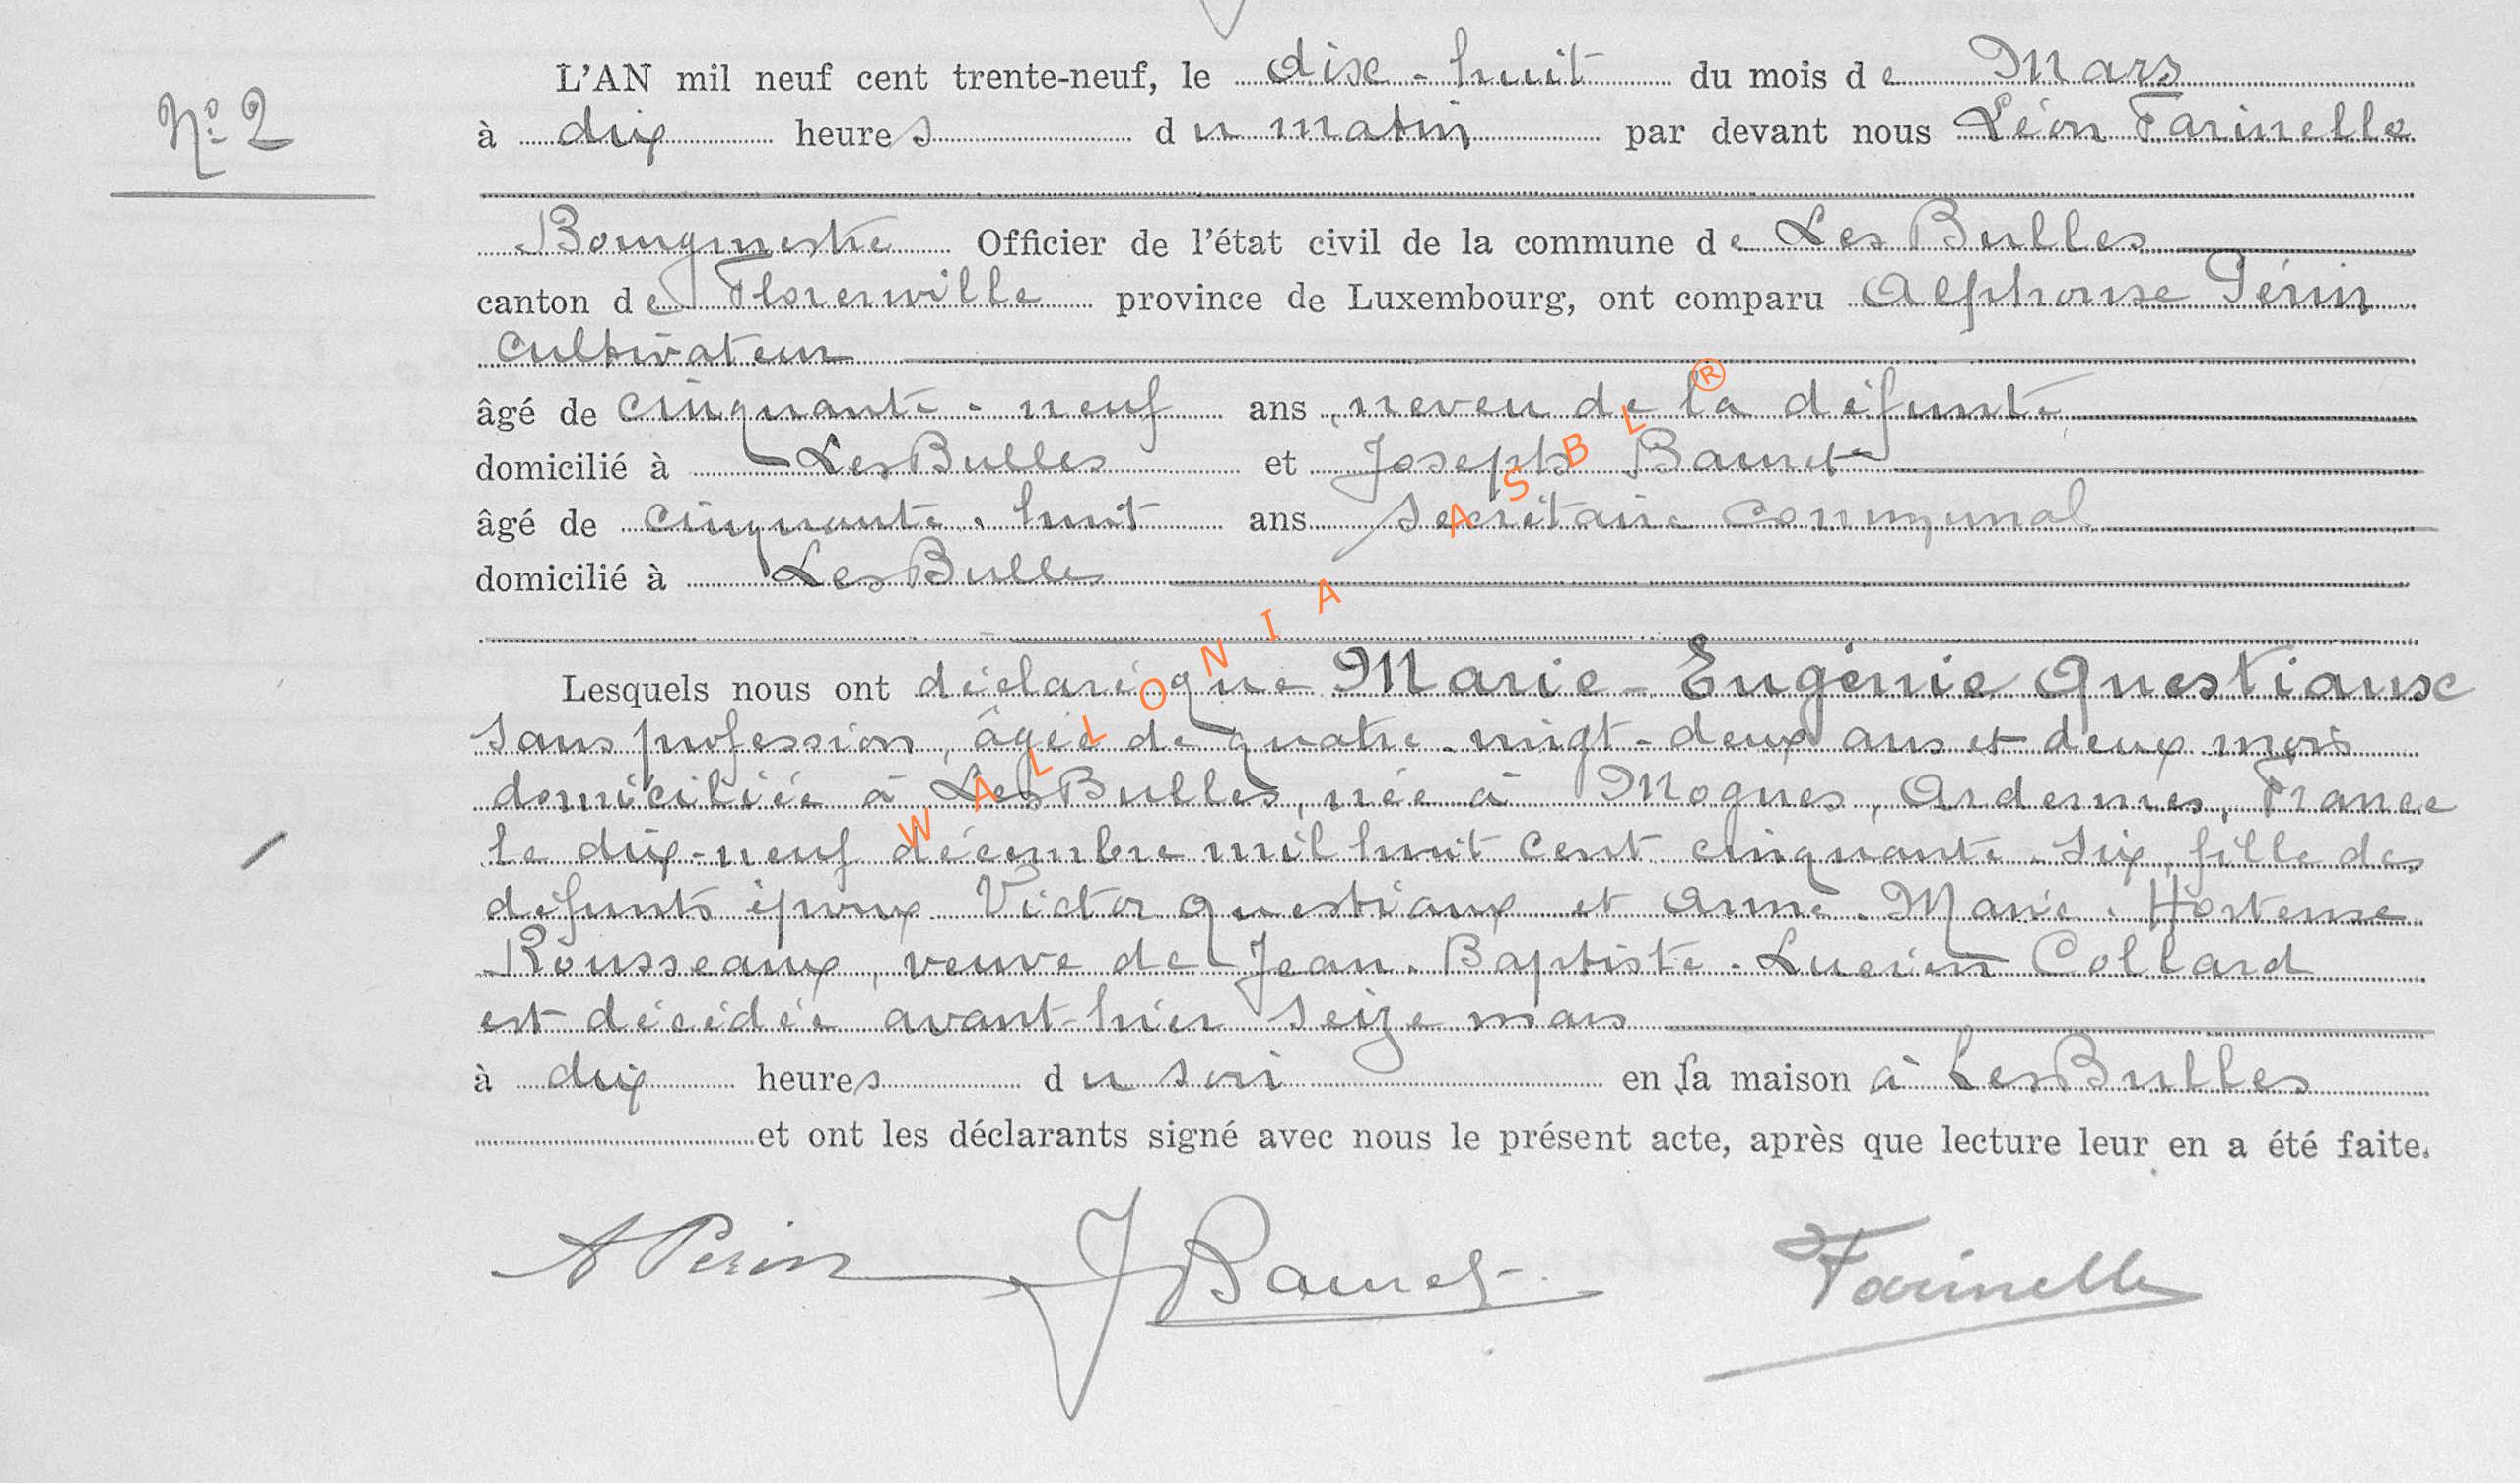 N° 2
L'AN mil neuf cent trente-neuf, le dix-huit du mois de Mars
à dix heures du matin par devant nous Léon Farinelle
Bourgmestre Officier de l'état civil de la commune de Les Bulles
canton de Florenville province de Luxembourg, ont comparu Alphonse Périn
cultivateur
âgé de cinquante-neuf ans, neveu de la défunte
domicilié à Les Bulles et Joseph
âgé de cinquante-huit ans Secrétaire communal
domicilié à Les Bulles
Lesquels nous ont déclaré que Marie-Eugénie Questiaux
sans profession, âgée de quatre-vingt-deux ans et deux mois
domiciliée à Les Bulles, née à Mogues, Ardennes, France
le dix-neuf décembre mil huit cent cinquante-six, fille des
défunts époux Victor Questiaux et Anne-Marie-Hortense
Rousseaux, veuve de Jean-Baptiste-Lucien Collard
est décédée avant-hier seize mars
à dix heures du soir en sa maison à Les Bulles
et ont les déclarants signé avec nous le présent acte, après que lecture leur en a été faite.
A Perin J Farinelle
WALLONIA ASBL ®